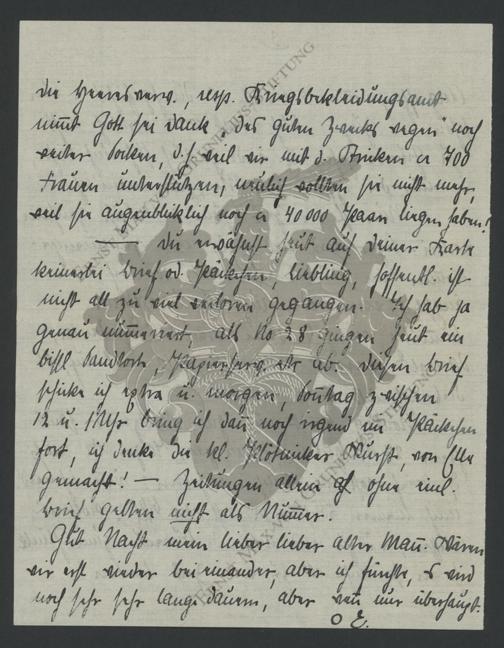 die Heeresverw., resp. Kriegsbekleidungsamt
nimmt Gott sei dank „des guten Zwecks wegen" noch
weiter Socken, d. h. weil wir mit d. Stricken ca 700
Frauen unterstützen, neulich wollten sie nicht mehr,
weil sie augenblicklich noch ca 40 000 Paar liegen haben!
— Du erwähnst heut auf deiner Karte
keinerlei brief od. Päckchen, liebling, hoffentl. ist
nicht all zu viel verloren gegangen. Ich hab ja
genau nummeriert, als No 28 gingen heut ein
bissl Sandtorte, Papierserv. etc ab. Diesen brief
schicke ich extra u. morgen, Sonntag zwischen
12 u. 1 Uhr bring ich dan noch irgend ein Päckchen
fort, ich denke die kl. Wurst, von
gemacht! — Zeitungen allein ohne einl.
brief gelten nicht als Nummer.
Gut Nacht mein lieber lieber alter Mann. Wären
wir erst wieder bei einander, aber ich fürchte, es wird
noch sehr sehr lange dauern, aber wenn nur überhaupt.
E.
STIFTUNG